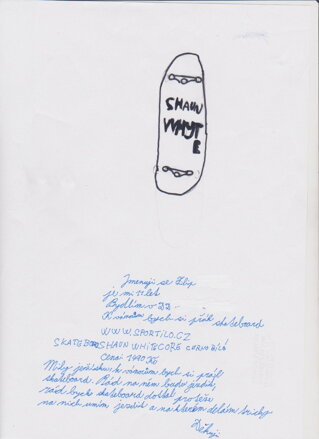 SHAUN
WHYT
E
Jmenuji se Filip
je mi 11 let
Bydlím v
K vánocům bych si přál skateboard
WWW.SPORTILO.CZ
SKATEBOARD SHAUN WHITE CORE ČERNO BÍLÝ
Cena: 1990 Kč
Milý ježíšku k vánocům bych si přál
skateboard. Rád na něm budu jezdit,
rád bych skateboard dostal protože
na něm umím jezdit a na kterém dělám triky
Děkuji